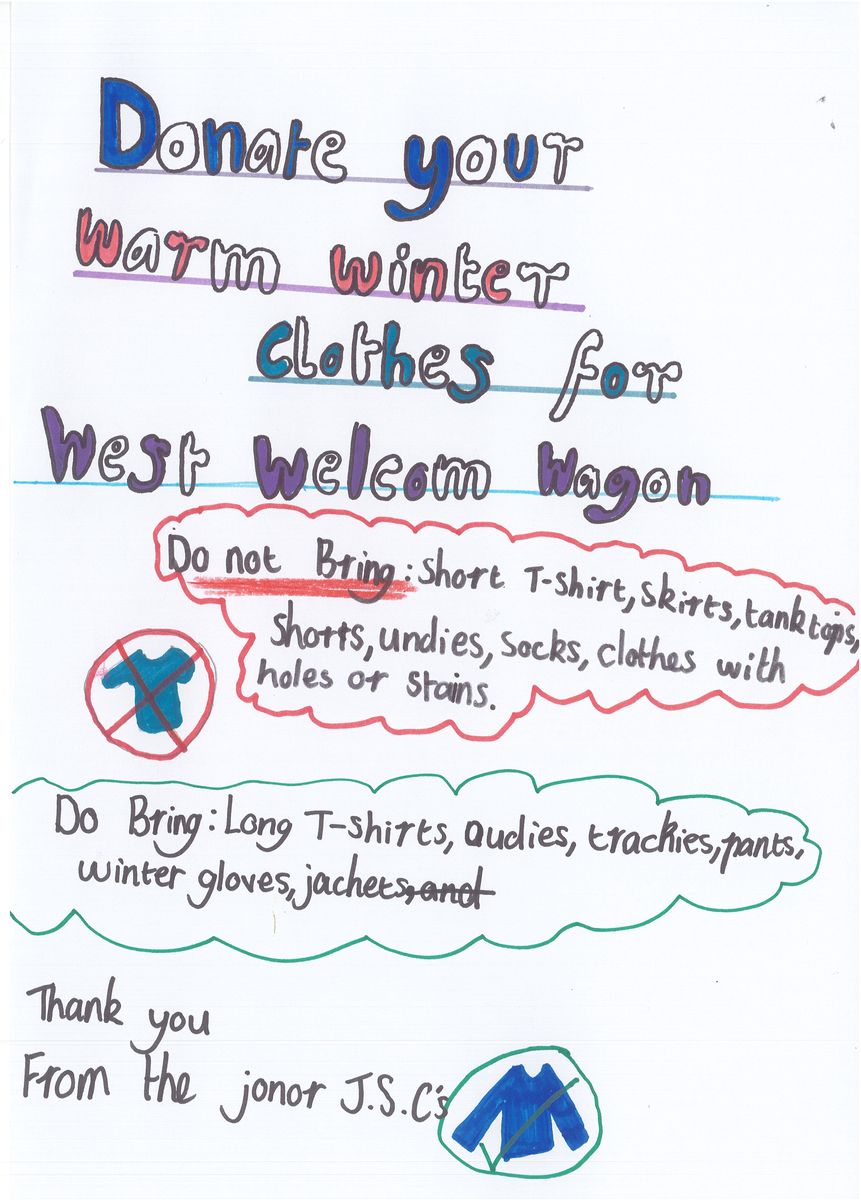 Donate your
warm winter
clothes for
West Welcom Wagon
Do not Bring: Short T-shirt, skirts, tank tops,
shorts, undies, socks, clothes with
holes or stains.
Do Bring: Long T-shirts, oudies, trackies, pants,
winter gloves, jachets, and
Thank you
From the jonor J.S.C's